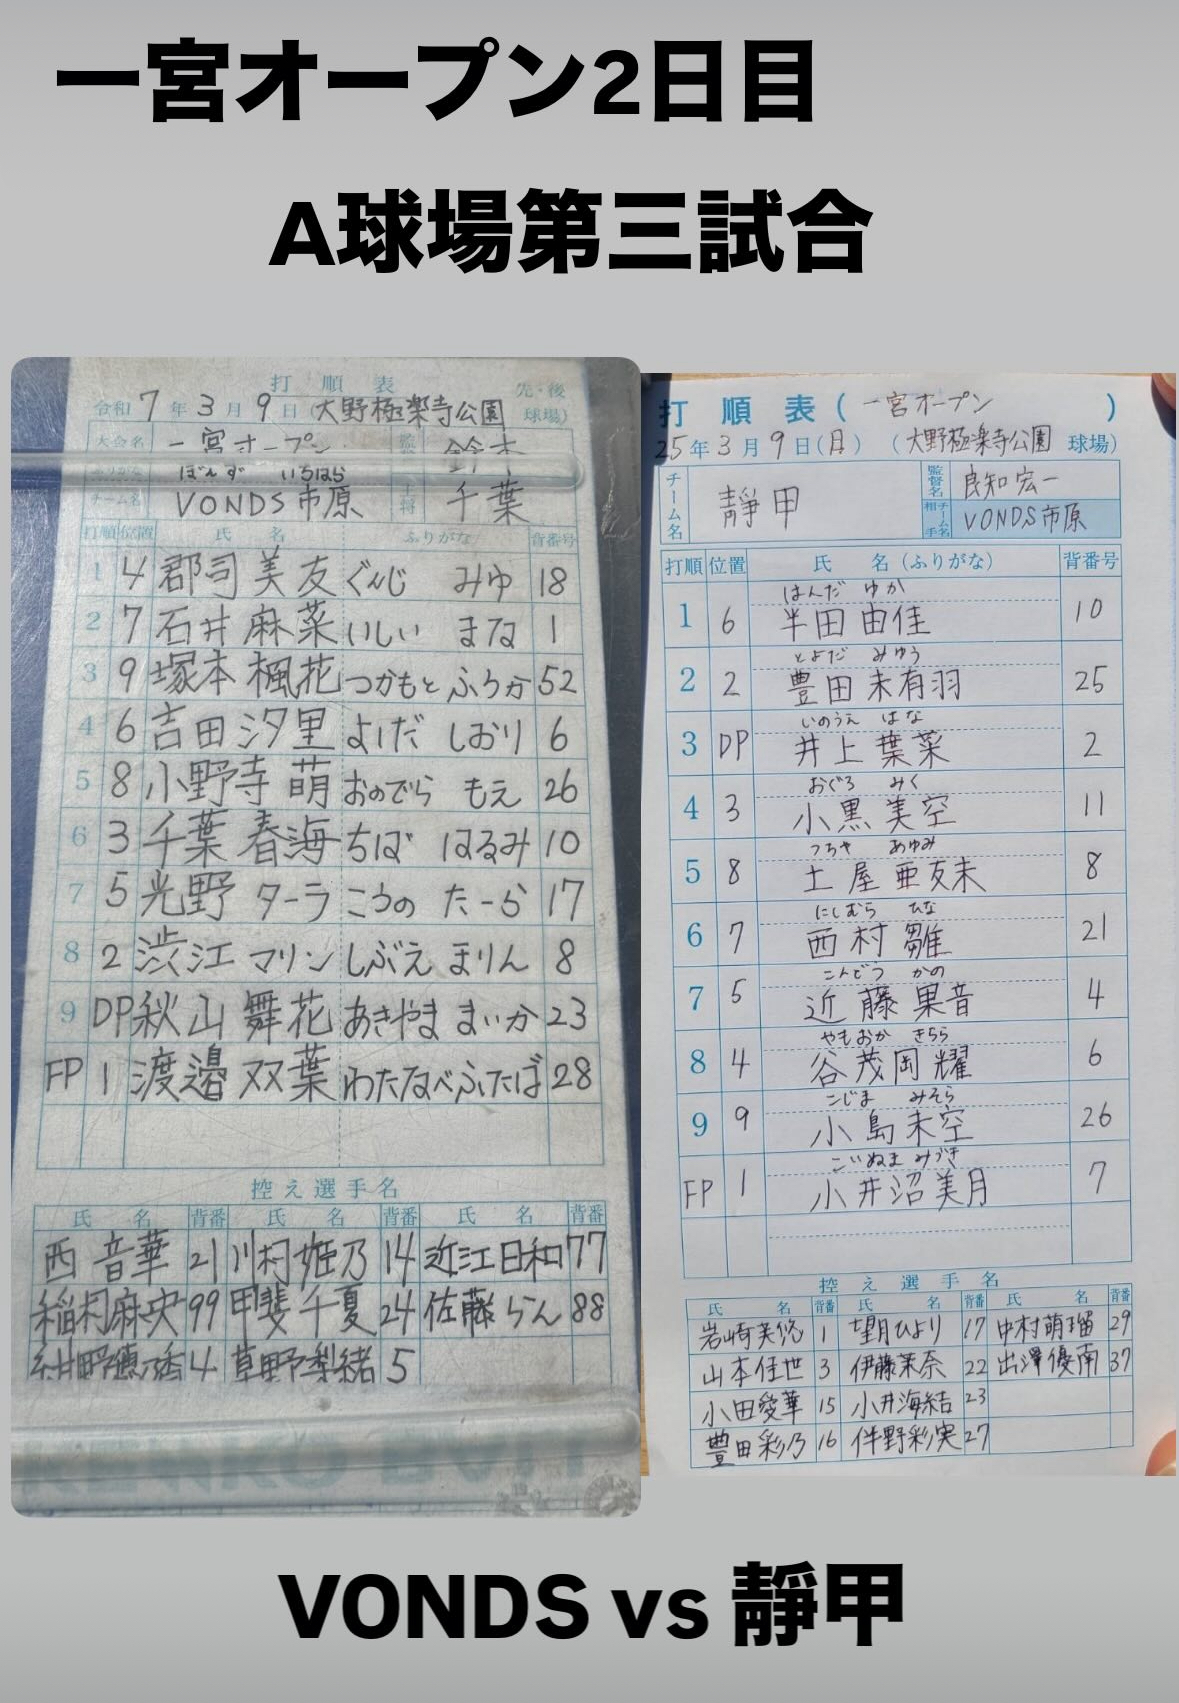 一宮オープン2日目
A球場第三試合
打順表
先・後
令和7年3月9日(大野極楽寺公園球場)
大会名 一宮オープン 監 鈴木
ぼんず いちはら
チーム名 VONDS市原 将 千葉
打順 位置 氏 名 ふりがな 背番号
1 4 郡司 美友 ぐんじ みゆ 18
2 7 石井 麻菜 いしい まな 1
3 9 塚本 楓花 つかもと ふうか 52
4 6 吉田 汐里 よしだ しおり 6
5 8 小野寺 萌 おのでら もえ 26
6 3 千葉 春海 ちば はるみ 10
7 5 光野 ターラ こうの たーら 17
8 2 渋江 マリン しぶえ まりん 8
9 DP 秋山 舞花 あきやま まいか 23
FP 1 渡邉 双葉 わたなべ ふたば 28
控え選手名
氏 名 背番 氏 名 背番 氏 名 背番
西 音華 21 川村 姫乃 14 近江 日和 77
稲村麻央 99 甲斐 千夏 24 佐藤 らん 88
4 草野梨緒 5
打順表(一宮オープン)
25年3月9日(月) (大野極楽寺公園 球場)
チーム名 靜甲 監督名 良知宏一
相手チーム名 VONDS市原
打順 位置 氏 名(ふりがな) 背番号
はんだ ゆか
1 6 半田 由佳 10
とよだ みゆう
2 2 豊田 未有羽 25
いのうえ はな
3 DP 井上 葉菜 2
おぐろ みく
4 3 小黒 美空 11
つちや あゆみ
5 8 土屋 亜友未 8
にしむら ひな
6 7 西村 雛 21
こんどう かの
7 5 近藤 果音 4
やもおか きらら
8 4 谷茂岡 耀 6
こじま みそら
9 9 小島 未空 26
こいぬま みづき
FP 1 小井沼 美月 7
控え選手名
氏 名 背番 氏 名 背番 氏 名 背番
岩崎美悠 1 望月ひより 17 中村萌瑠 29
山本佳世 3 伊藤茉奈 22 出澤優南 37
小田愛華 15 小井海結 23
豊田彩乃 16 伴野彩実 27
VONDS vs 靜甲